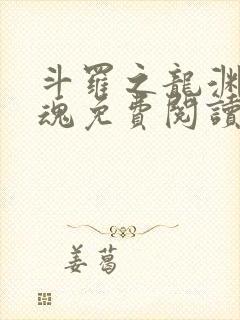 斗羅之龍淵
魂免費閱讀
姜葛